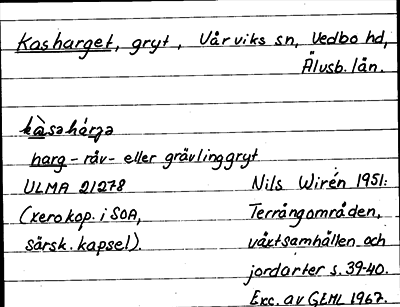 Kasharget, gryt, Vårviks sn, Vedbo hd,
Älvsb. län.
harg - räv- eller grävlinggryt
ULMA 21278
(xerokop. i SOA,
särsk. kapsel).
Nils Wirén 1951:
Terrängområden,
växtsamhällen och
jordarter s. 39-40.
Exc. av GEHL 1967.